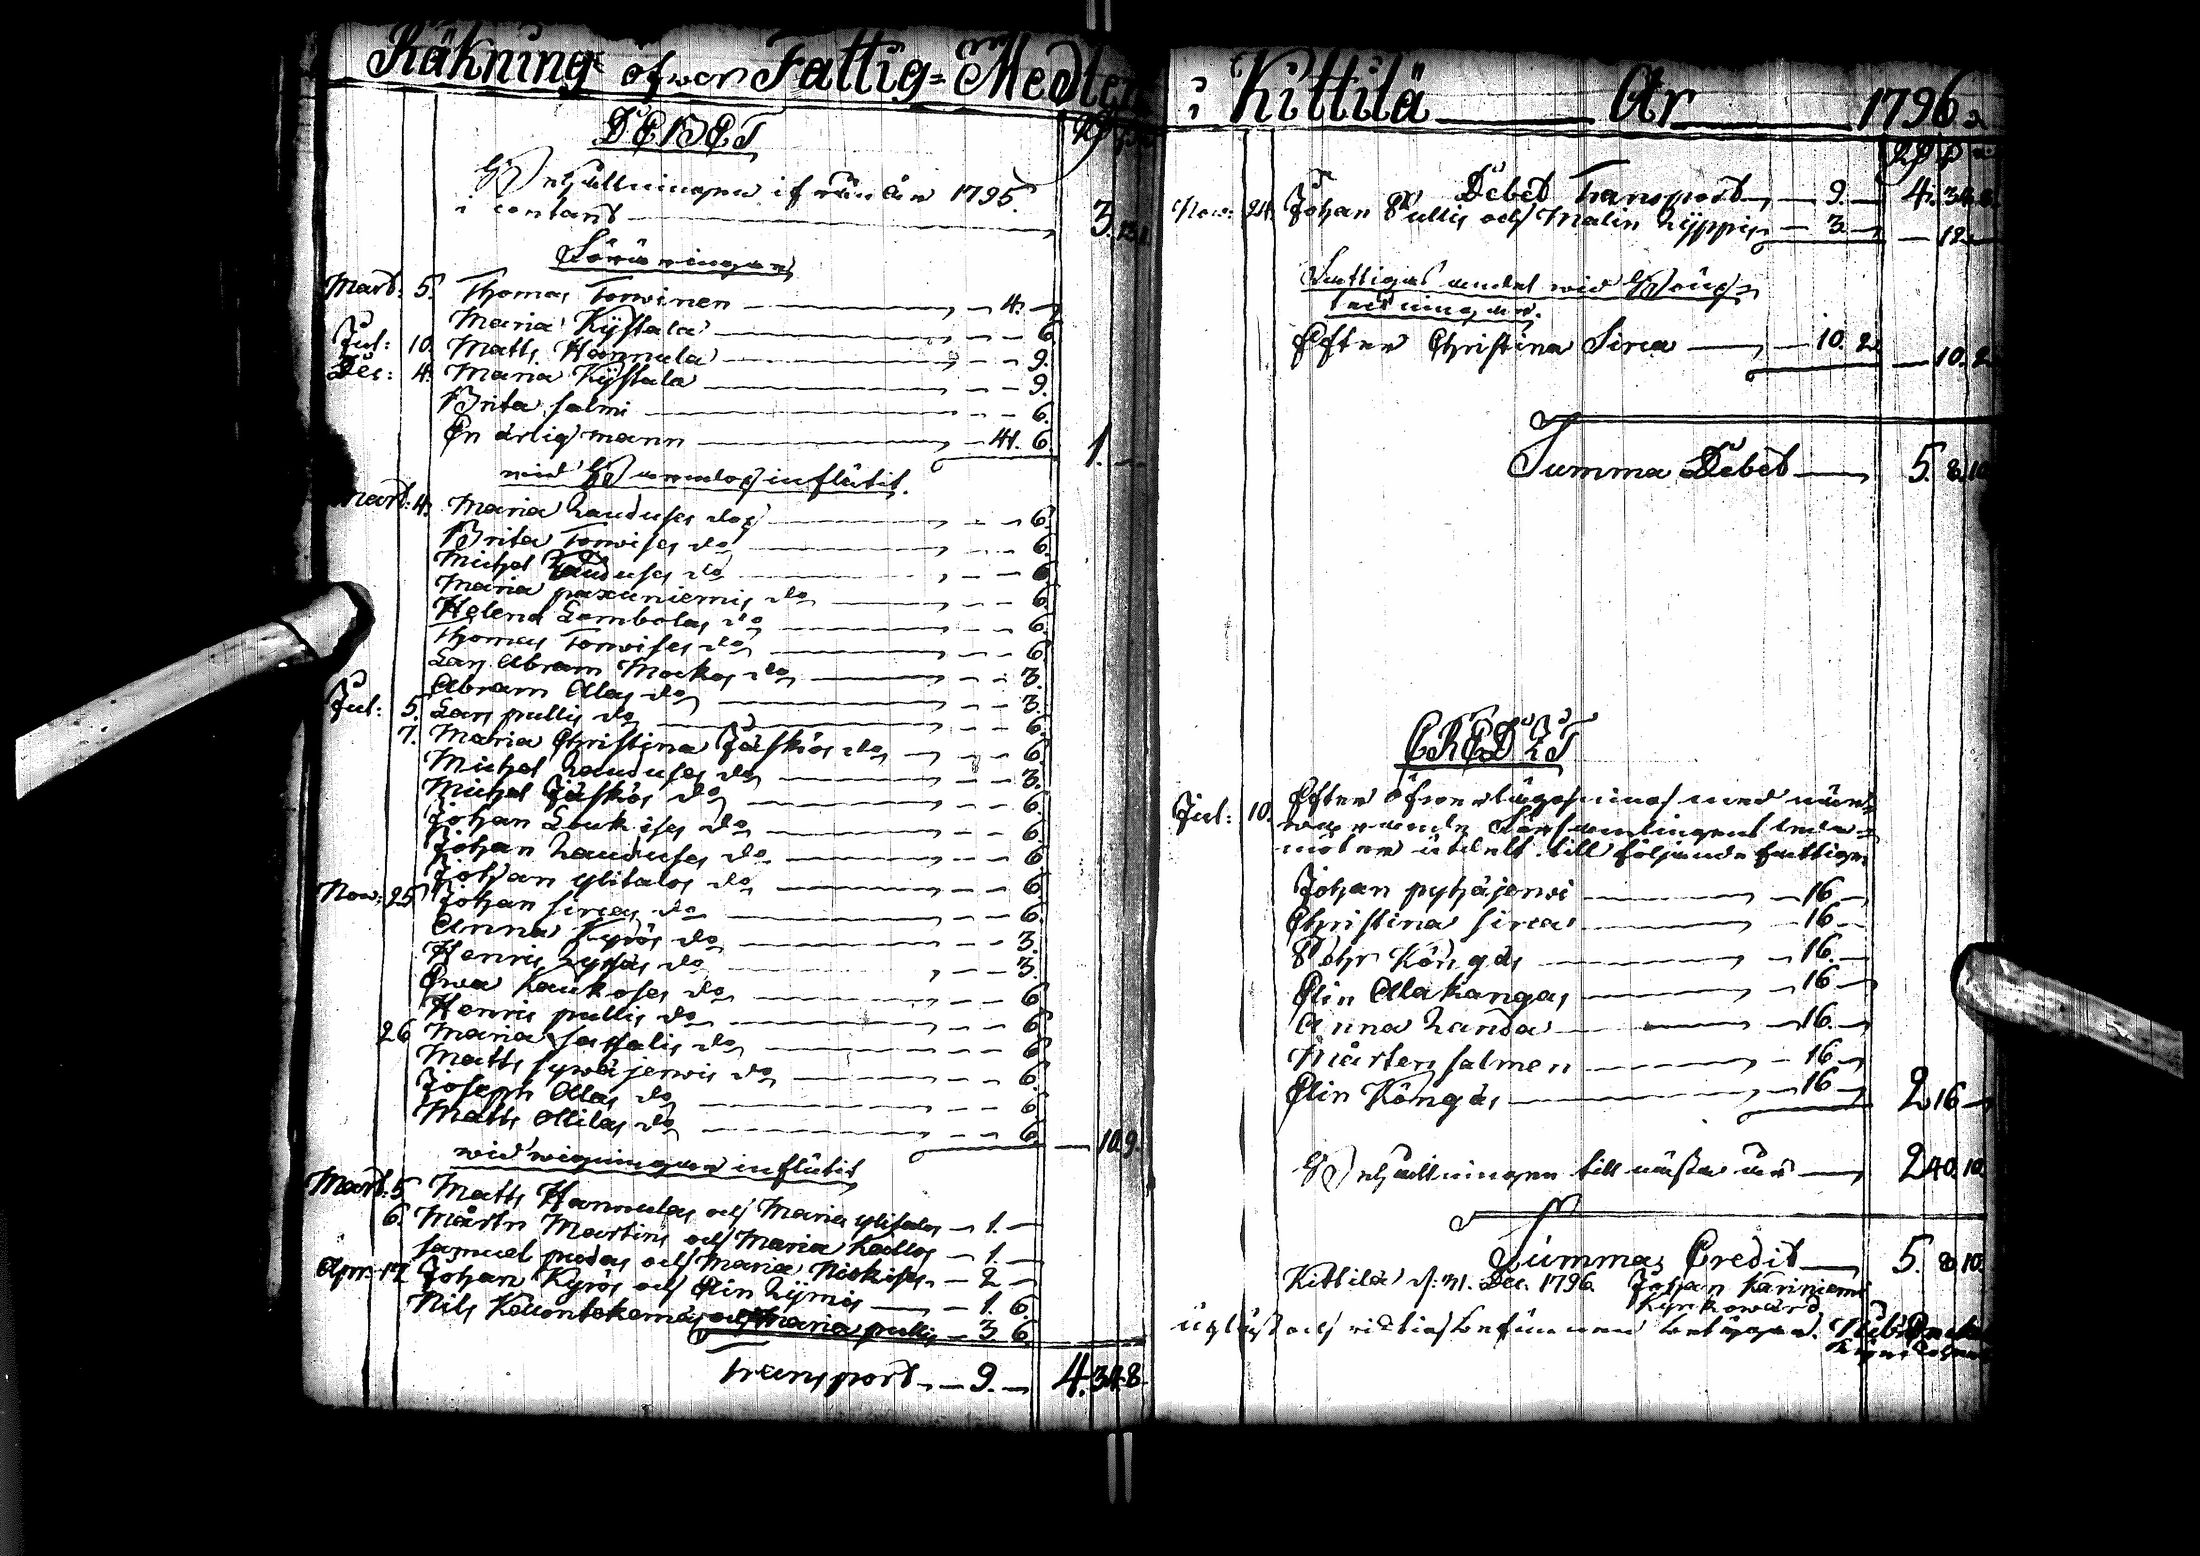 Räkning öfwer Fattig=Medlen
DEBET
Behållningen ifrån år 1795.
i contant 3.
Föräringar
Mart: 5. Thomas Torwinen 4.
Maria Kÿstala 6.
Jul: 10. Matts Hannula 9.
Dec: 4. Maria Kÿstala 9.
Brita Salmi 6.
En ärlig mann 41. 6. 1.
wid Barndop influtit.
Mart: 4. Maria Lauduses dop 6.
Brita Torwises do 6.
Michel Lauduses do 6.
Maria paxuniemis do 6.
Helena Lombolas do 6.
Thomas Torwises do 6.
Lars Abram Mockos do 3.
Abram Alas do 3.
Jul: 5. Lars pullis do 6.
7. Maria Christina Jäskös do 6.
Michel Lauduses do 3.
Michel Jäskös do 6.
Johan Loukises do 6.
Johan Lauduses do 6.
Johan ylitalos do 6.
Now: 25 Johan Sircas do 6.
Anna Kyrös do 3.
Henric do 3.
Ewa Kaukoses do 6.
Henric pullis do 6.
26 Maria do 6.
Matts sywäjerwis do 6.
Joseph Ollas do 6.
Matts Ollilas do 6. 10 9.
wid wigningar influtit
Mart: 5 Matts Hannulas och Maria ylitalos 1.
6. Mårtn Martins och Maria Kallos 1.
Samuel pudas och Maria Niskises 2
Apr: 17 Johan Kyrös och Elin Lÿmis 1. 6.
Nils Kellontekemäs och Maria pullis 3 6.
transport 9. 4. 34 8.
i Kittilä År 1796.
Debet Transport 9. 4. 34 8.
Now: 24. Johan Pullis och Malin Lyppis 3. 12
Fattigas andel wid Boup=
teckningar.
Efter Christina Sirca 10. 2. 10. 2.
Summa Debet 5. 8. 10
CREDIT
Jul: 10. Efter öfwerläggning med när=
warande Församlingens leda=
möter utdelt till följande fattige
Johan pyhäjerwi 16
Christina Sirca 16
Pehr Köngäs 16
Elin Allakangas 16
Anna Landa 16
Mårten Salmen 16
Elin Köngäs 16 2. 16
Behållningen till nästa år 2 40. 10.
Summa Credit 5. 8. 10.
Kittilä d. 31. Dec. 1796. Johan Kariniemi
Kyrkowärd
upläst och riktigt befunnen betygar.